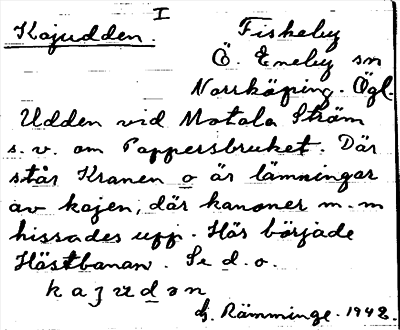 I
Kajudden. Fiskeby
Ö. Eneby sn
Norrköping. Ögl.
Udden vid Motala Ström
s.v. om Pappersbruket. Där
står Kranen o är lämningar
av kajen, där kanoner m.m
hissades upp. Här började
Hästbanan. Se d.o.
G. Rämminge. 1942.